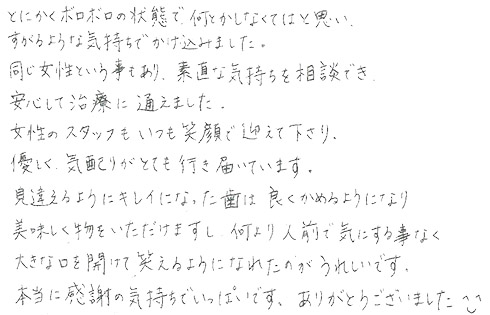 とにかくボロボロの状態で何とかしなくてはと思い、
すがるような気持ちでかけ込みました。
同じ女性という事もあり、素直な気持ちを相談でき
安心して治療に通えました。
女性のスタッフもいつも笑顔で迎えて下さり、
優しく、気配りがとても行き届いています。
見違えるようにキレイになった歯は良くかめるようになり
美味しく物をいただけますし、何より人前で気にする事なく
大きな口を開けて笑えるようになれたのがうれしいです。
本当に感謝の気持ちでいっぱいです、ありがとうございました